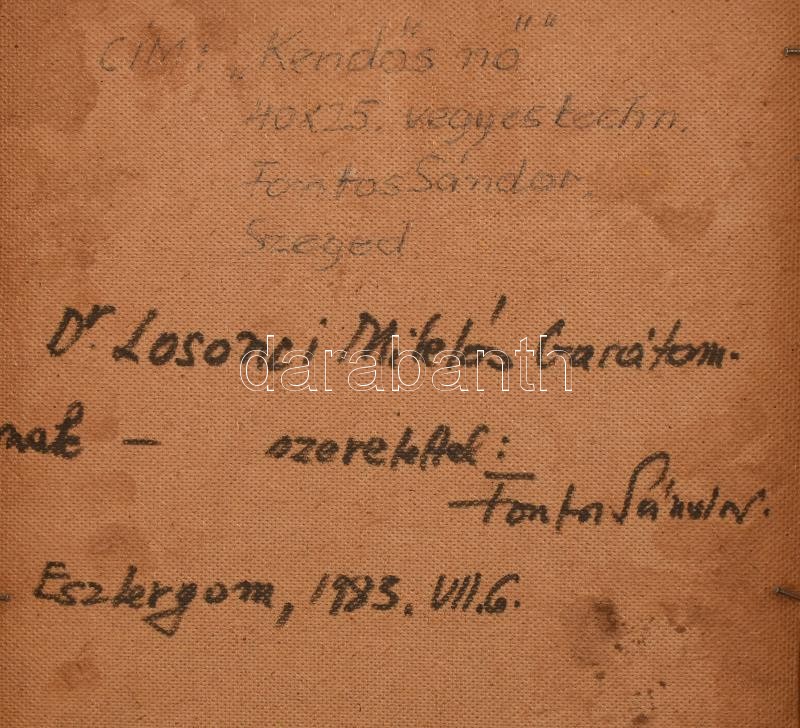 CIM: „Kendős nő”
40x25. vegyestechn.
Fontos Sándor.
Szeged.
Dr. Losonci Miklós barátom-
nak — szeretettel:
Fontos Sándor.
Esztergom, 1983. VII.6.
darabanth